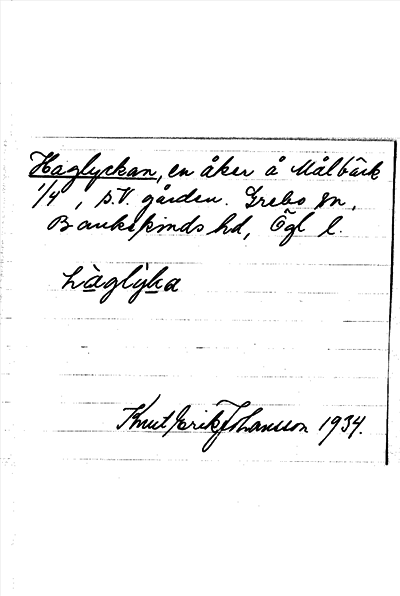 Haglyckan, en åker å Målbäck
1/4, s.V. gården. Grebo sn,
Bankekinds hd, Ögl l.
hàglỳka
Knut Erik Johansson 1934.